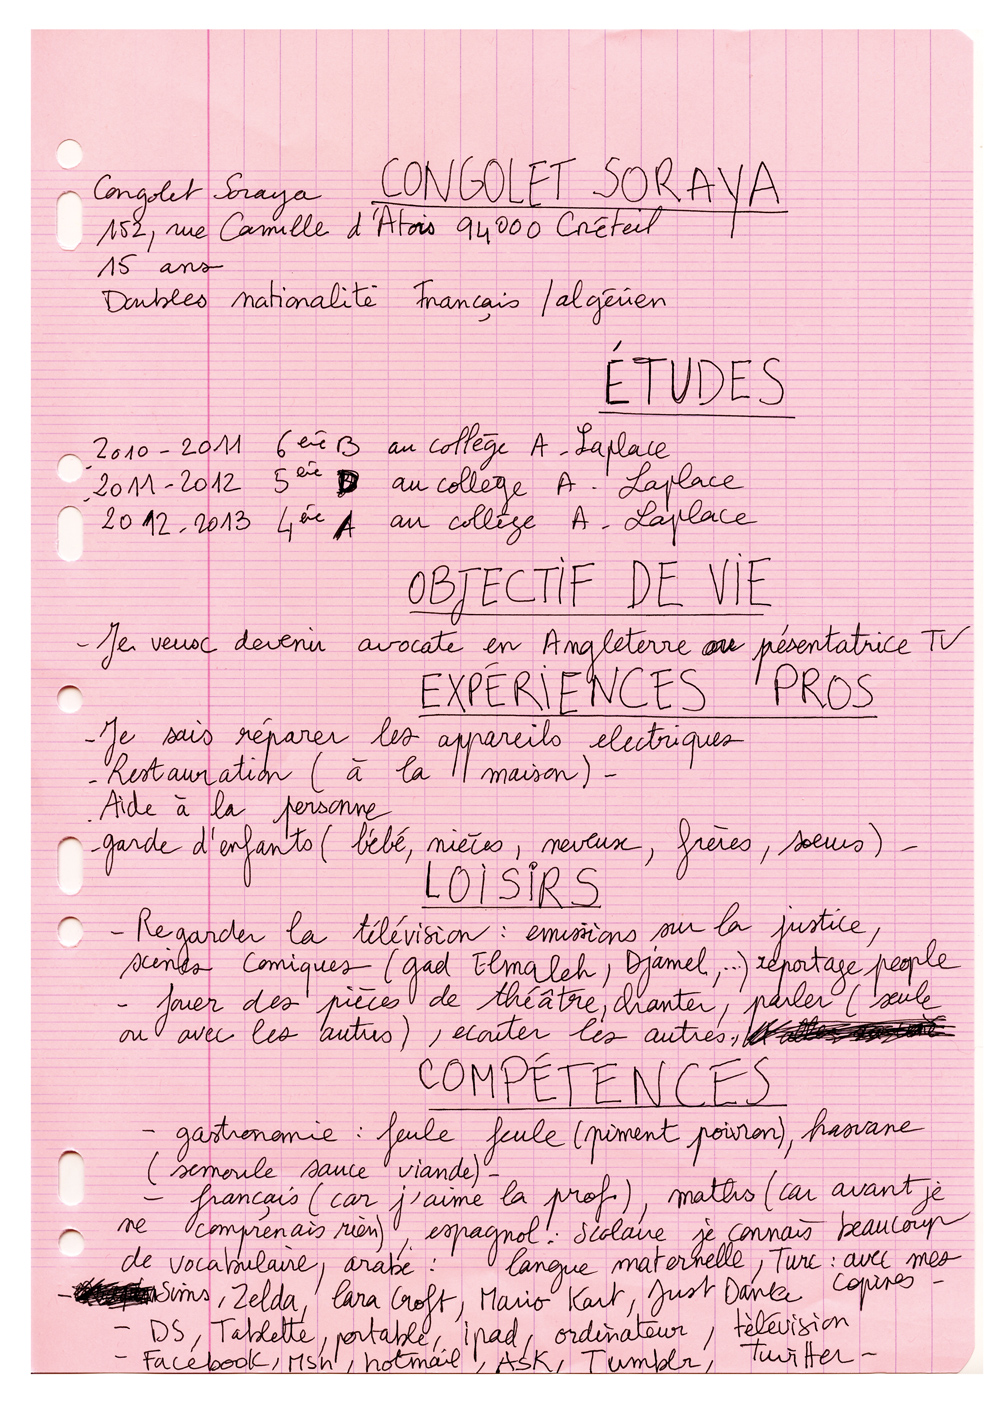 CONGOLET SORAYA
Congolet Soraya
152, rue Camille d'Atois 94000 Créteil
15 ans
Doubles nationalité Français / algérien
ÉTUDES
2010 - 2011 6ère B au collège A - Laplace
2011 - 2012 5ère D au collège A. Laplace
2012 - 2013 4ère A au collège A - Laplace
OBJECTIF DE VIE
- Je veux devenir avocate en Angleterre ou pésentatrice TV
EXPÉRIENCES PROS
- Je sais réparer les appareils electriques
- Restauration ( à la maison) -
. Aide à la personne
- garde d'enfants ( bébé, nièces, neveux, frères, soeurs) -
LOISIRS
- Regarder la télévision : emissions sur la justice,
scènes comiques (gad Elmaleh, Djamel,...) reportage people
- Jouer des pièces de théâtre, chanter, parler ( seule
ou avec les autres) , ecouter les autres,
COMPÉTENCES
- gastronomie : feule feule (piment poivron), hasvane
( semoule sauce viande) -
- français ( car j'aime la prof), maths (car avant je
ne comprenais rien) , espagnol : Scolaire je connais beaucoup
de vocabulaire, arabe : langue maternelle, Turc : avec mes
copines -
- Sims, Zelda, Lara Croft, Mario Kart, Just Dance
- DS, Tablette, portable, ipad, ordinateur, télévision
- Facebook, Msn, hotmail, ASK, Tumblr, Twitter -